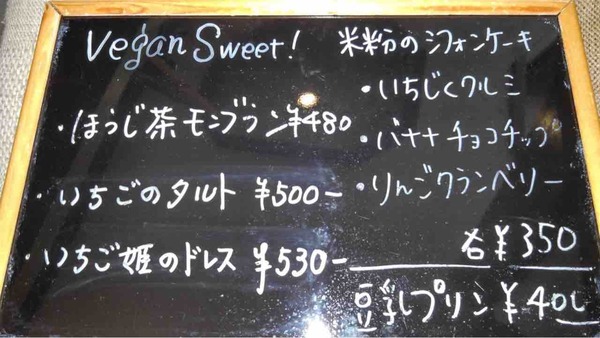 Vegan Sweet!
・ほうじ茶モンブラン¥480
・いちごのタルト ¥500-
・いちご姫のドレス ¥530-
米粉のシフォンケーキ
・いちじくクルミ
・バナナチョコチップ
・りんごクランベリー
各¥350
豆乳プリン ¥400